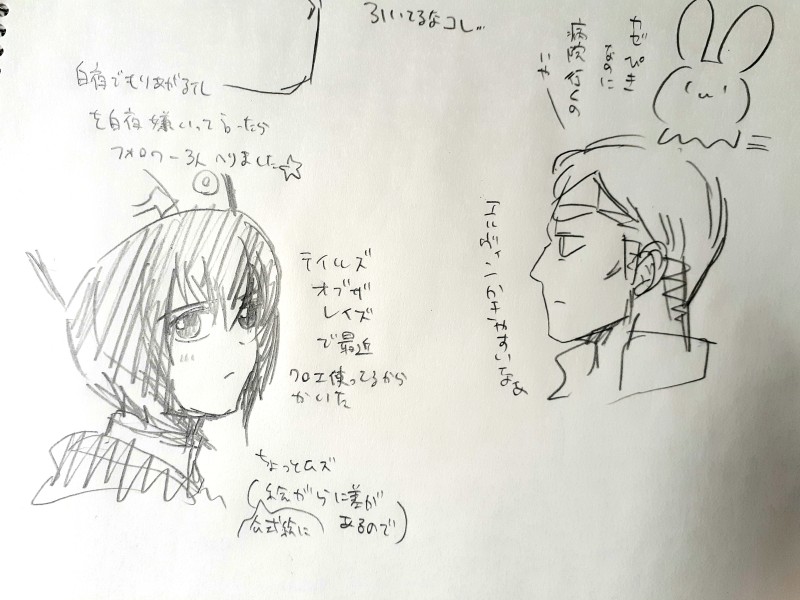 3いいてるなコレ…
カゼぴき
なのに
病院行くの
いや
白夜でもりあがるTL
を白夜嫌いって言ったら
フォロワー3人へりました☆
エルヴィンかきやすいなぁ
テイルズ
オブザ
レイズ
で最近
クロエ使ってるから
かいた
ちょっとムズ
(絵がらに差が
あるので)
公式絵に